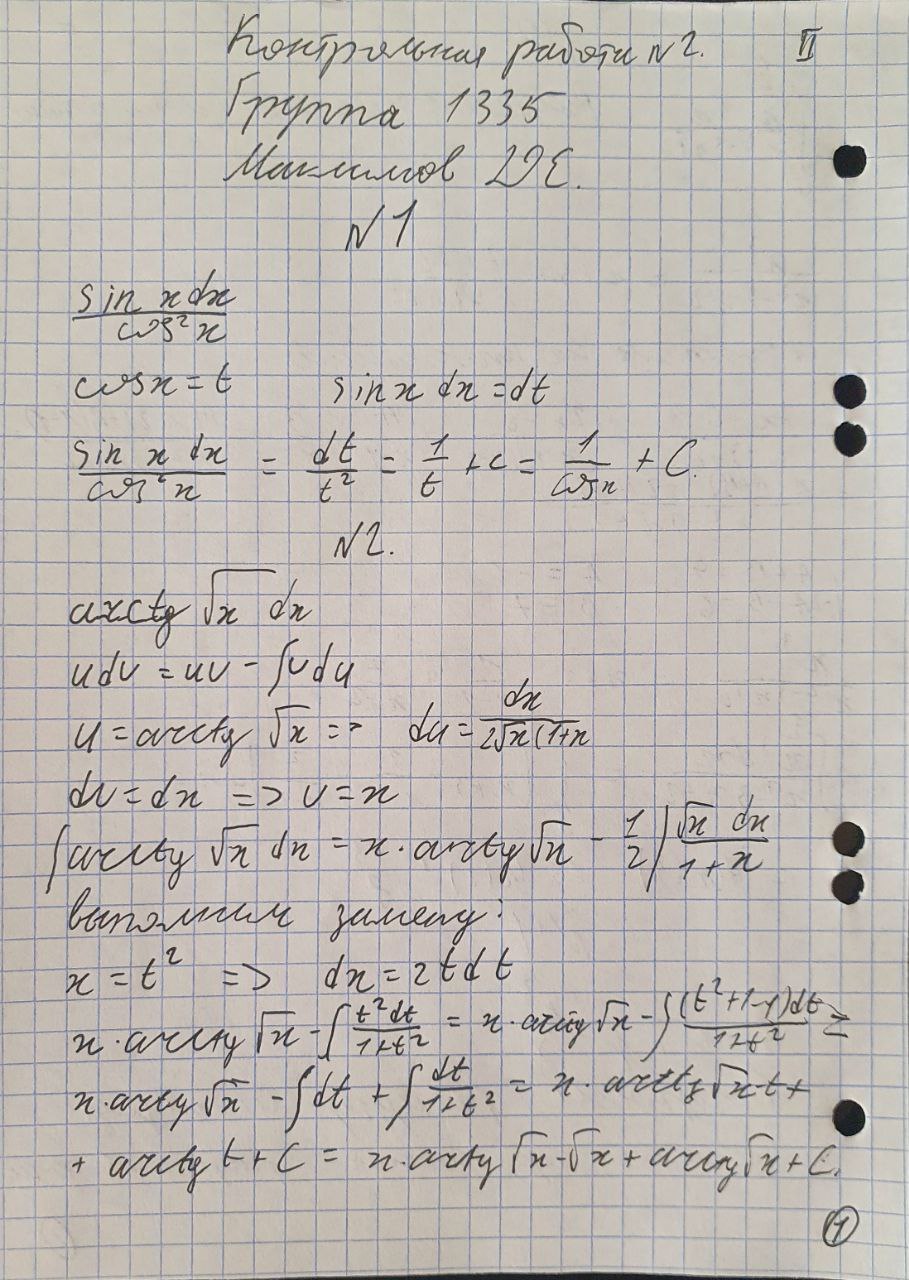 Контрольная работа №2. II
Группа 1335
Максимов Д.Е.
№1
sin x dx / cos² x
cos x = t sin x dx = dt
sin x dx / cos² x = dt / t² = 1/t + c = 1 / cos x + C.
№2.
arctg √x dx
u dv = uv - ∫v du
u = arctg √x => du = dx / 2√x(1+x
dv = dx => v = x
∫arctg √x dx = x · arctg √x - 1/2 ∫ √x dx / 1+x
выполним замену:
x = t² => dx = 2t dt
x · arctg √x - ∫ t² dt / 1+t² = x · arctg √x - ∫ (t²+1-1)dt / 1+t² =
x · arctg √x - ∫dt + ∫ dt / 1+t² = x · arctg √x - t +
+ arctg t + C = x · arctg √x - √x + arctg √x + C.
1